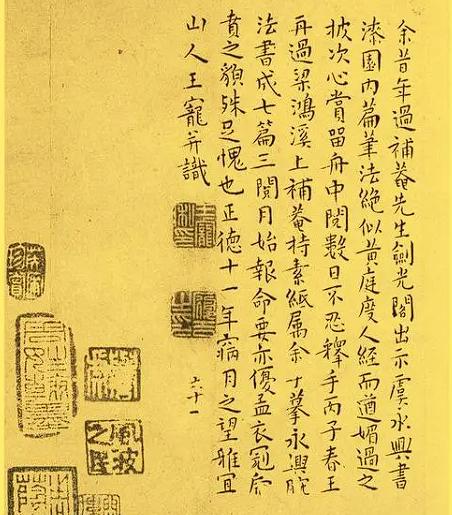 余昔年過補菴先生劍光閣出示虞永興書
漆園內篇筆法絕似黃庭度人經而遒媚過之
披次心賞留舟中閱數日不忍釋手丙子春王
再過梁鴻溪上補菴持素紙属余摹永興腕
法書成七篇三閱月始報命要亦優孟衣冠虎
賁之貌殊足愧也正德十一年病月之望雅宜
山人王寵并識
六十一